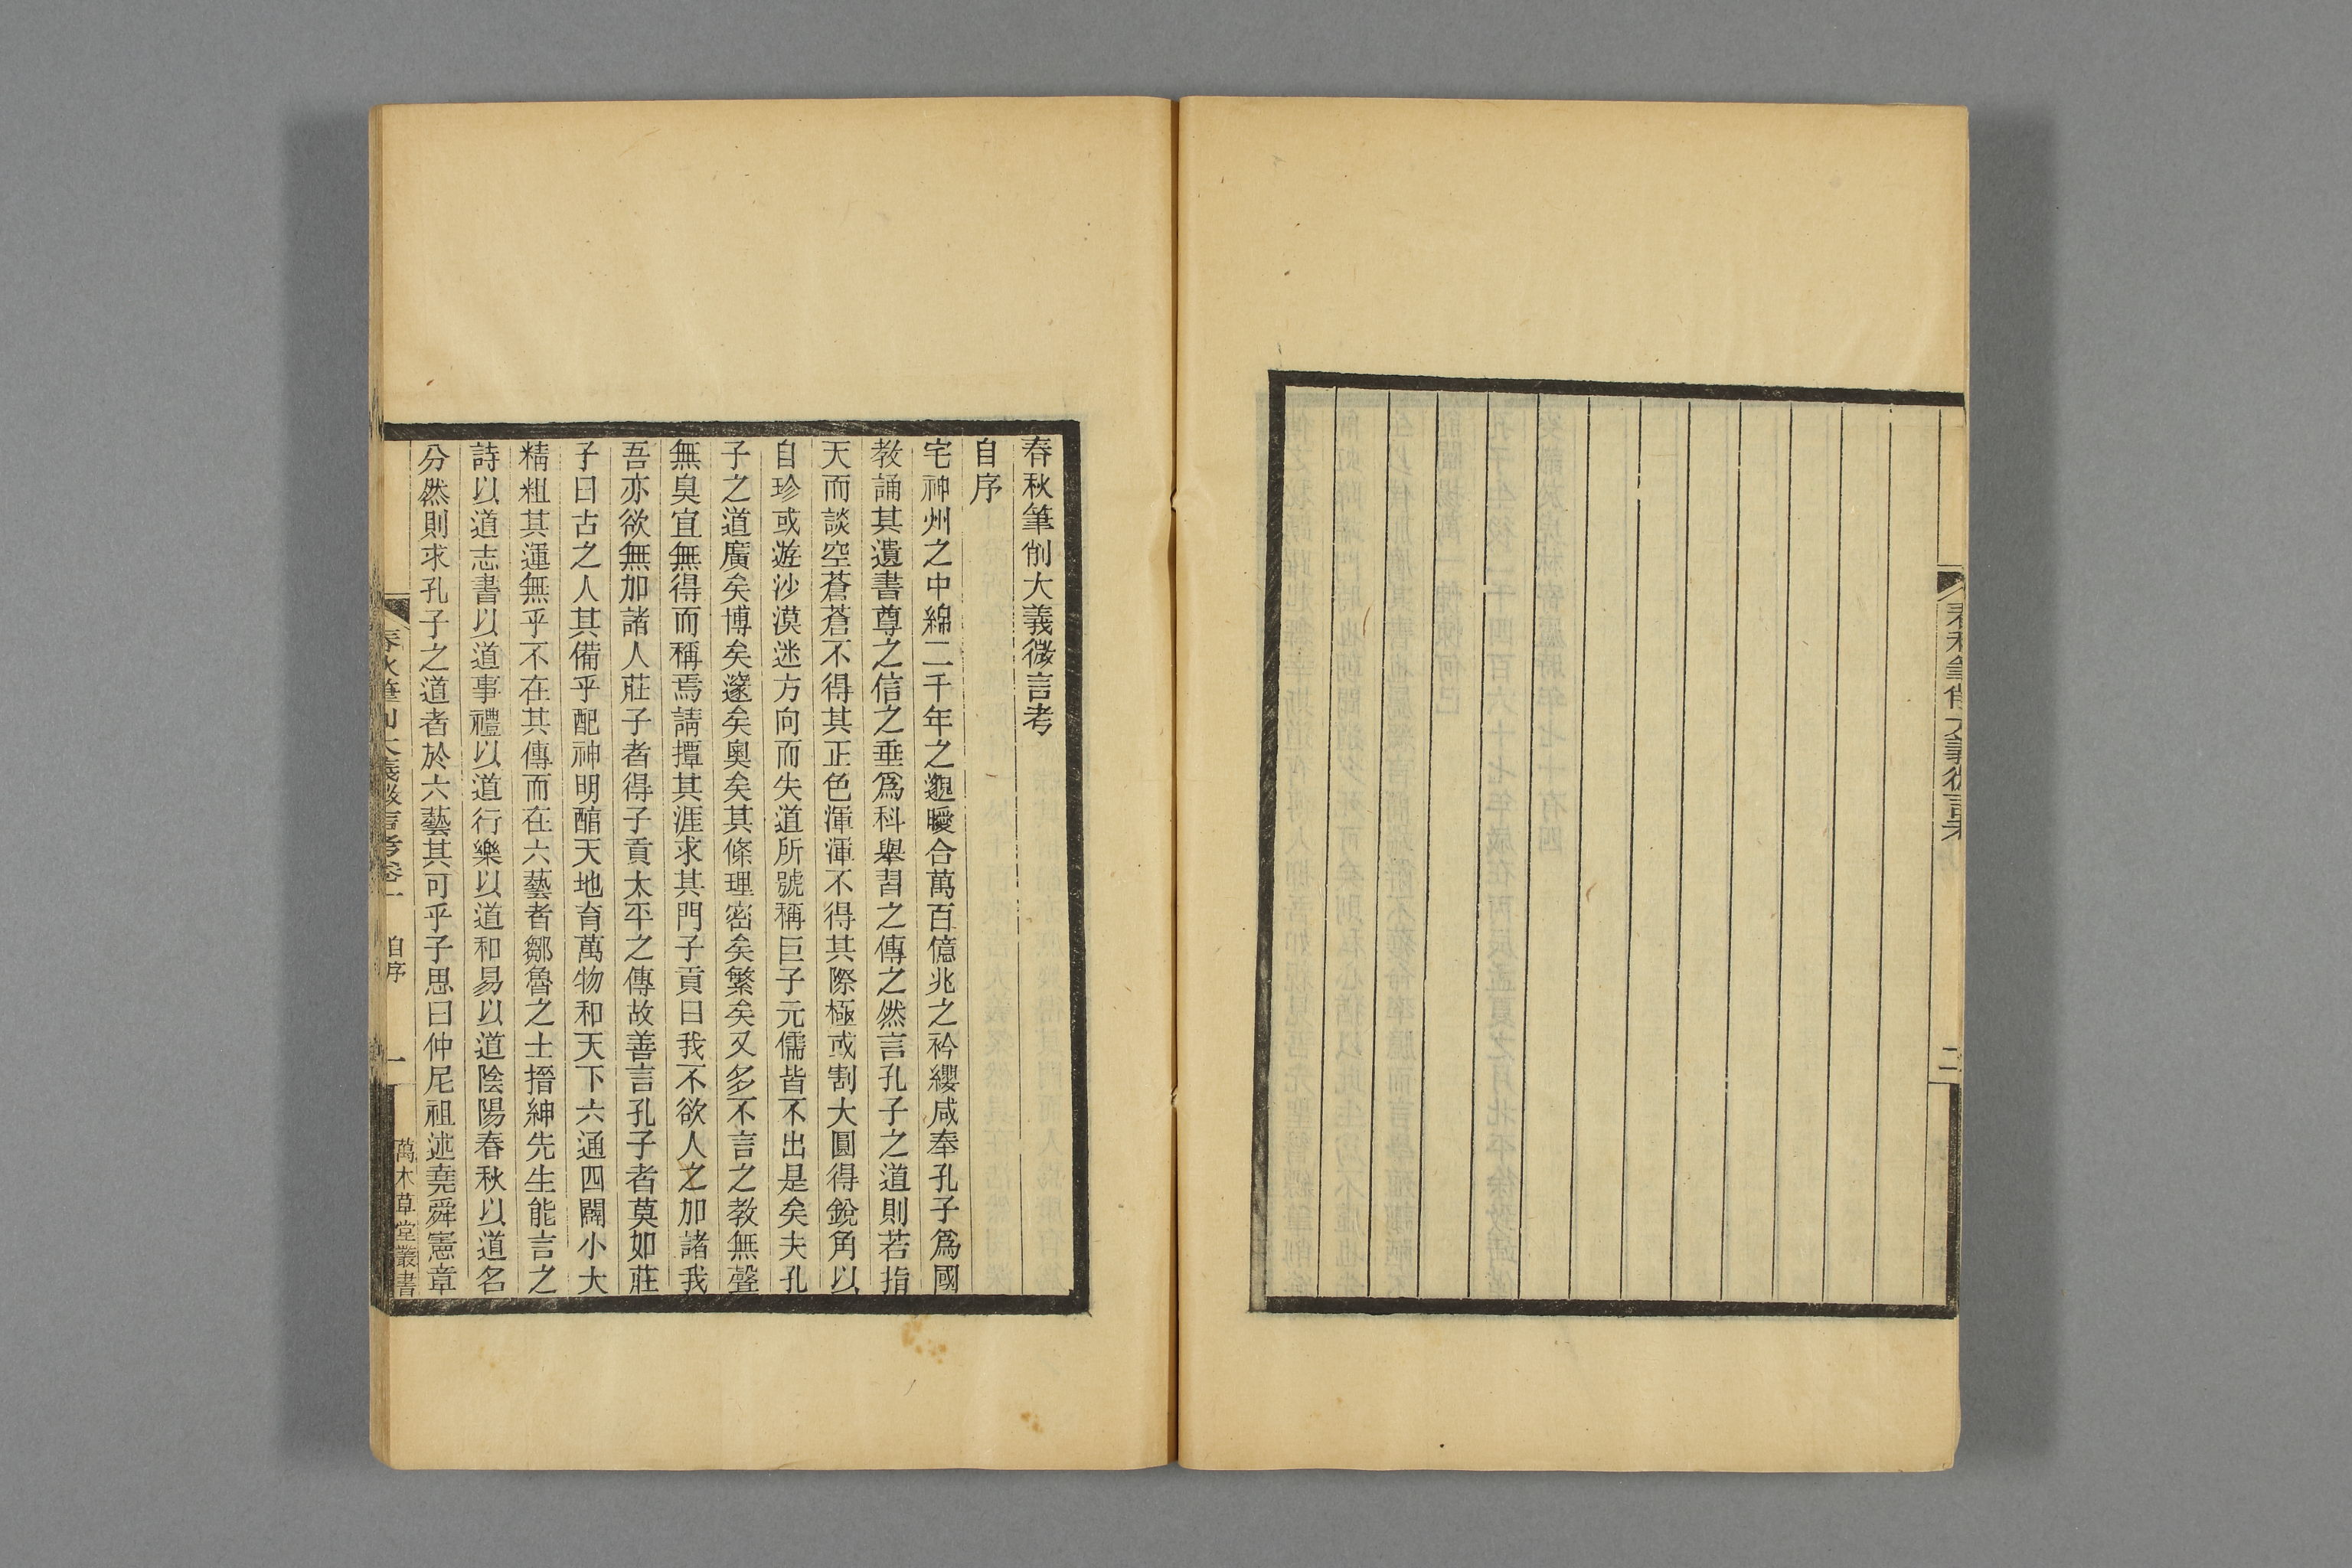 春秋筆削大義微言考
二
春秋筆削大義微言考
自序
宅神州之中綿二千年之邈曖合萬百億兆之衿纓咸奉孔子爲國
教誦其遺書尊之信之垂爲科舉習之傳之然言孔子之道則若指
天而談空蒼蒼不得其正色渾渾不得其際極或割大圓得銳角以
自珍或遊沙漠迷方向而失道所號稱巨子元儒皆不出是矣夫孔
子之道廣矣博矣邃矣奧矣其條理密矣繁矣又多不言之教無聲
無臭宜無得而稱焉請撢其涯求其門子貢曰我不欲人之加諸我
吾亦欲無加諸人莊子者得子貢太平之傳故善言孔子者莫如莊
子曰古之人其備乎配神明醕天地育萬物和天下六通四闢小大
精粗其運無乎不在其傳而在六藝者鄒魯之士搢紳先生能言之
詩以道志書以道事禮以道行樂以道和易以道陰陽春秋以道名
分然則求孔子之道者於六藝其可乎子思曰仲尼祖述堯舜憲章
春秋筆削大義微言考卷一 自序 一 萬木草堂叢書